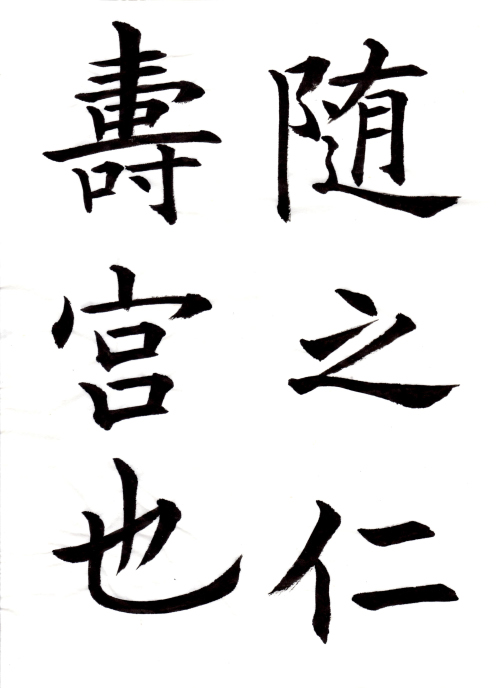 随之仁
壽宮也